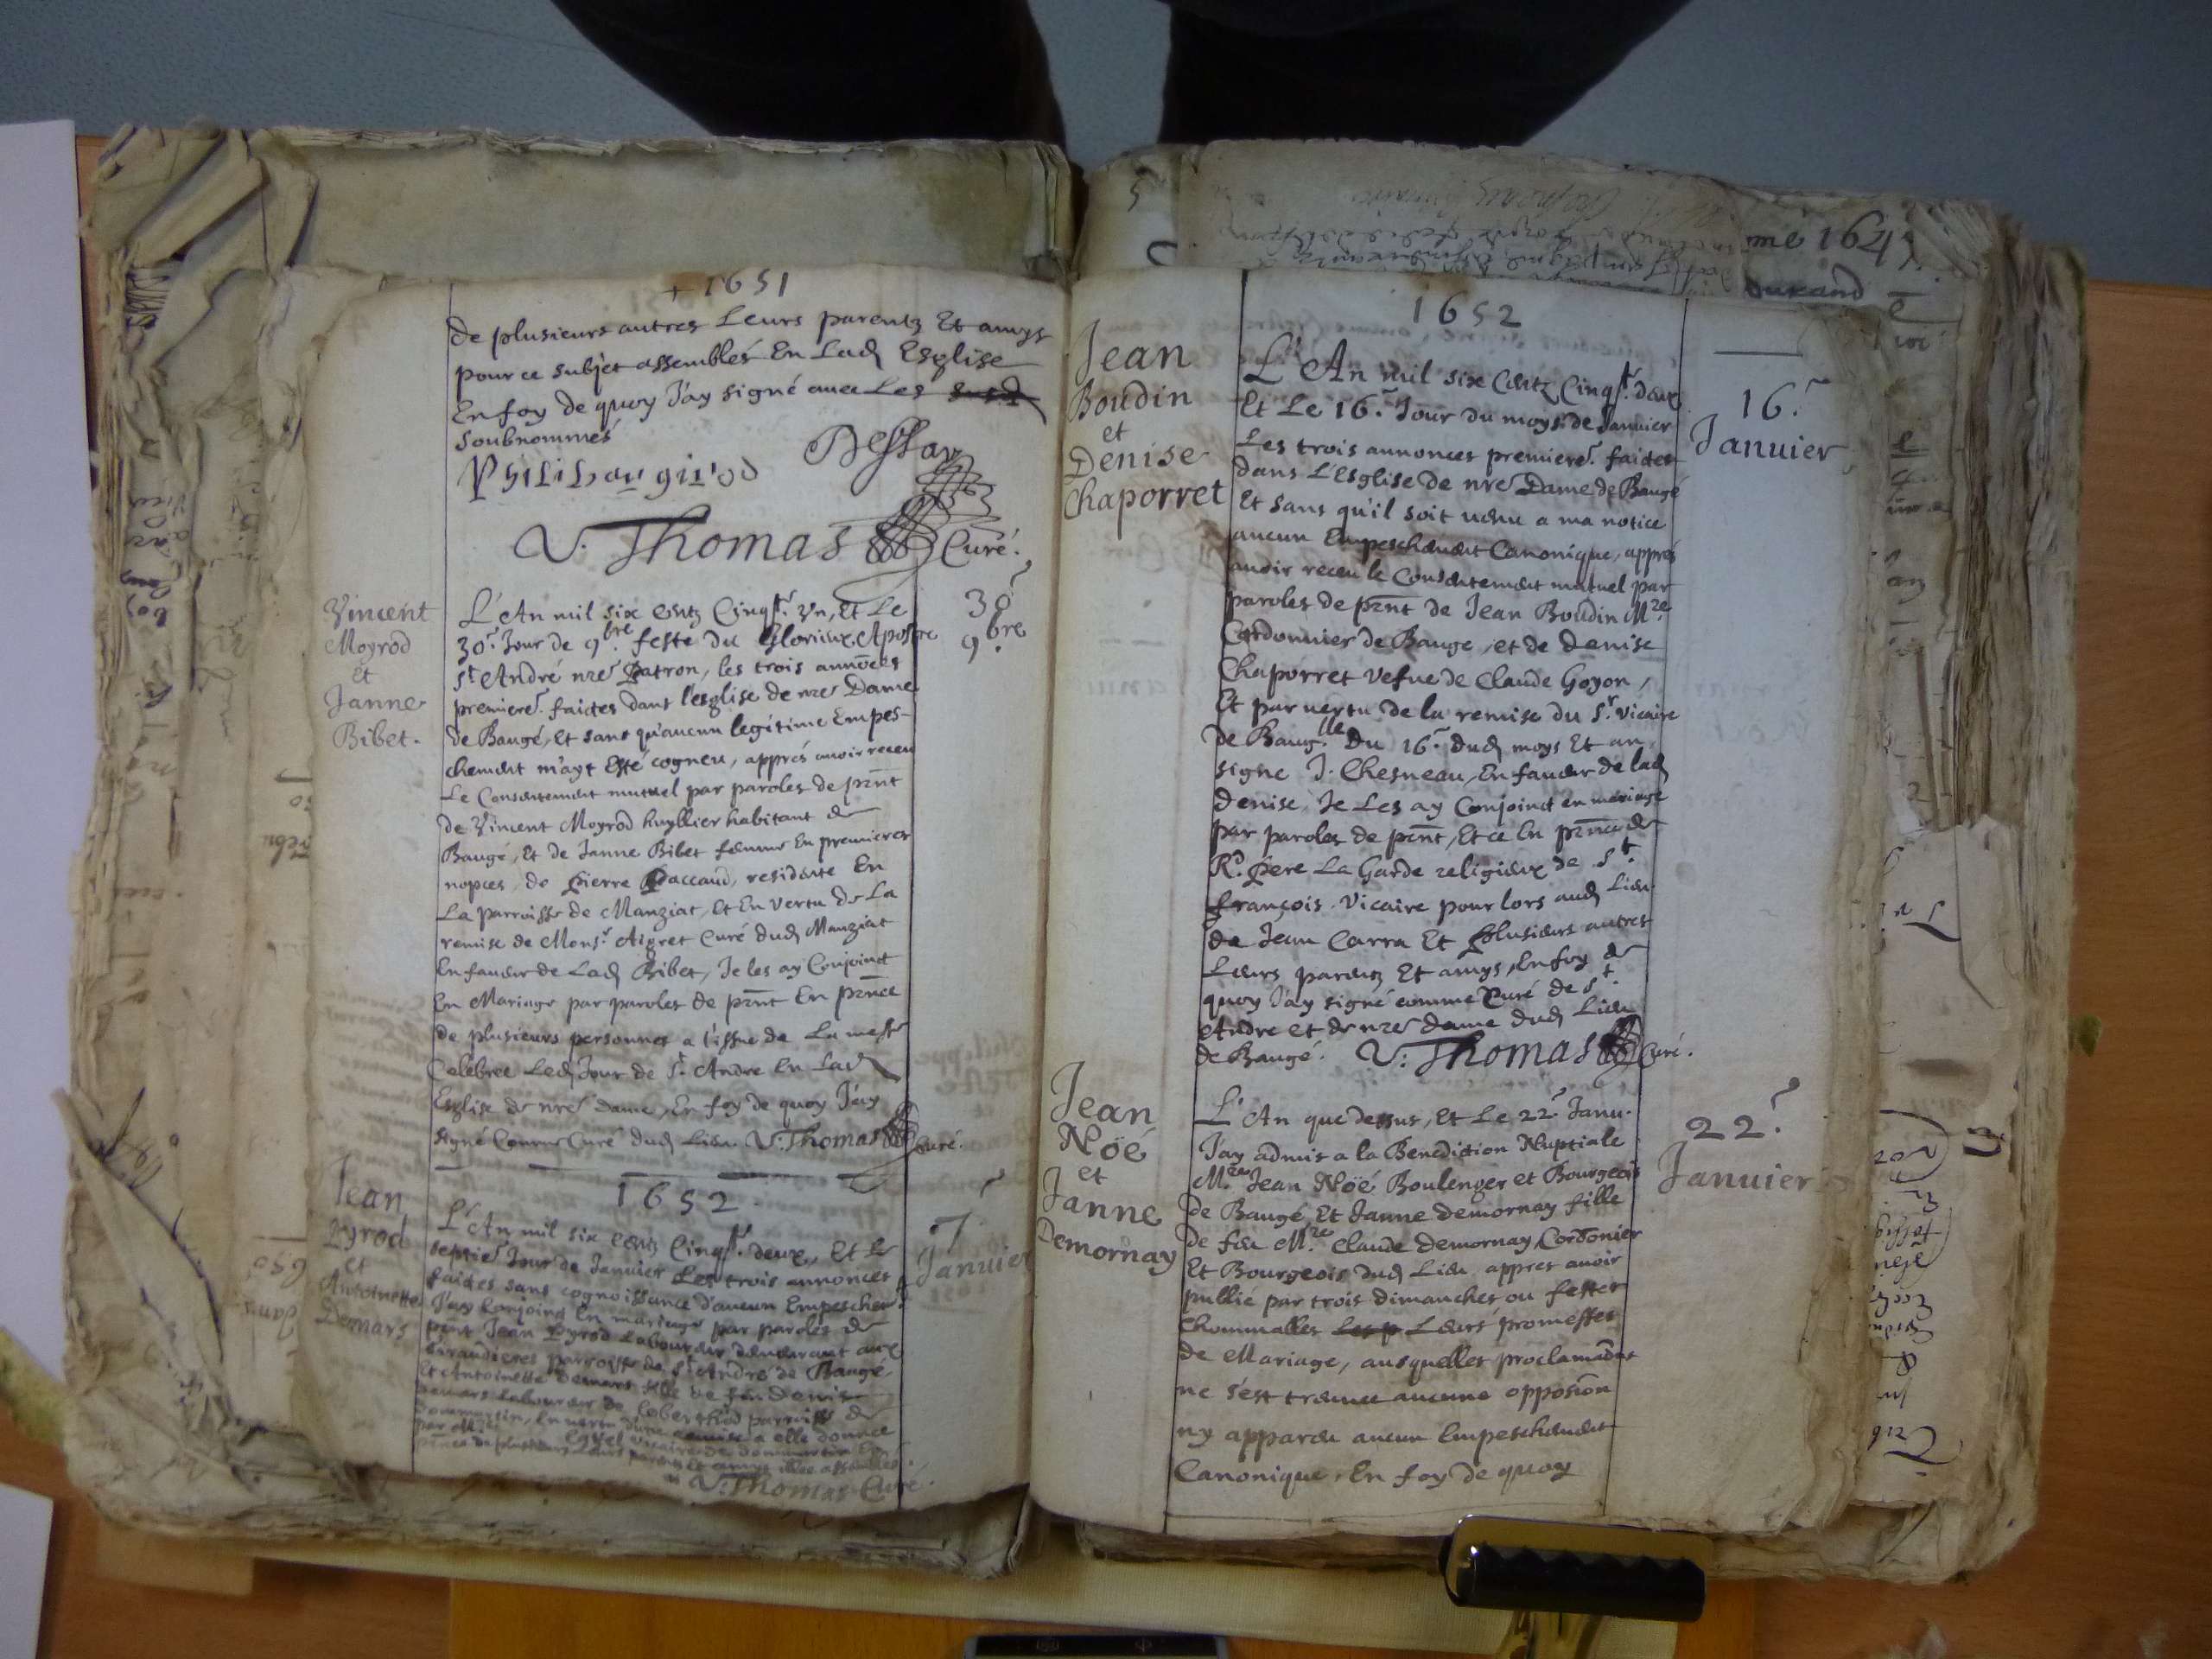 + 1651
de plusieurs autres Leurs parentz Et amys
pour ce subjet assemblés En Lad. Esglise
En foy de quoy J'ay signé avec Les
soubnommés
V. Thomas Curé.
Vincent
Moyrod
et
Janne
Bibet.
L'An mil six centz Cinqte. Vn, Et Le
30e. Jour de 9bre. feste du Glorieux Apostre
St André nre Patron, les trois annonces
premieremt. faictes dans l'esglise de nre Dame
de Baugé, Et sans qu'aucun legitime Empes-
chement m'ayt Esté cogneu, apprés avoir receu
Le Consentement mutuel par paroles de pnt
de Vincent Moyrod huyllier habitant de
Baugé, Et de Janne Bibet femme En premieres
nopces de Pierre Paccaud, residente En
La parroisse de Manziat, Et En vertu de La
remise de Monsr. Aigret Curé dud. Manziat
En faveur de Lad. Bibet, Je les ay Conjoinct
En Mariage par paroles de pnt En pnce
de plusieurs personnes a l'issue de La messe
Celebree Led. Jour de St. Andre En Lad.
Esglise de nre dame, En foy de quoy J'ay
signé Comme Curé dud. Lieu. V. Thomas Curé.
30e
9bre.
1652.
Jean
Pyrod
et
Antoinette
Demars
L'An mil six centz Cinqte. deux, Et Le
septie. Jour de Janvier Les trois annonces
faictes sans cognoissance d'aucun Empeschemt.
J'ay Conjoinct En mariage par paroles de
pnt Jean Pyrod Laboureur demeurant aux
parroisse de St André de Baugé,
Et Antoinette Demars fille de feu Denis
Demars Laboureur de parroisse de
Dommartin, En vertu d'une remise a elle donnée
par Vicaire de Dommartin En
pnce de plusieurs Leurs parentz Et amys assemblés.
V. Thomas Curé.
7e
Janvier
1652
Jean
Boudin
et
Denise
Chaporret
L'An mil six Centz Cinqte. deux
Et Le 16e. Jour du moys de Janvier
Les trois annonces premieremt. faictes
dans L'Esglise de nre Dame de Baugé
Et sans qu'il soit venu a ma notice
aucun Empeschement Canonique, apprés
avoir receu le Consentement mutuel par
paroles de pnt de Jean Boudin Mre.
Cordonnier de Bauge, et de Denise
Chaporret vefve de Claude Goyon,
Et par vertu de la remise du Sr. Vicaire
de Baug.lle du 16e. dud. moys Et an
signe J. Chesneau, En faveur de lad.
Denise, Je Les ay Conjoinct en mariage
par paroles de pnt, Et ce En pnce de
Rd. Pere La Garde religieux de St.
françois. Vicaire pour lors aud. Lieu.
de Jean Carra Et plusieurs autres
Leurs parentz Et amys, En foy de
quoy J'ay signé comme Curé de St.
Andre et de nre dame dud. Lieu
de Baugé. V. Thomas Curé.
16e.
Janvier
Jean
Noé
et
Janne
Demornay
L'An que dessus, Et Le 22e. Janv.
J'ay admis a la Benediction Nuptiale
Mre. Jean Noé Boulenger et Bourgeois
de Baugé, Et Janne Demornay fille
de feu Mre. Claude Demornay Cordonier
Et Bourgeois dud. Lieu appres avoir
publié par trois dimanches ou festes
Chommalles Les p Leurs promesses
de Mariage, ausquelles proclamaons
ne s'est treuvée aucune opposion
ny appareu aucun Empeschement
Canonique, En foy de quoy
22e.
Janvier
me 1641
Durand